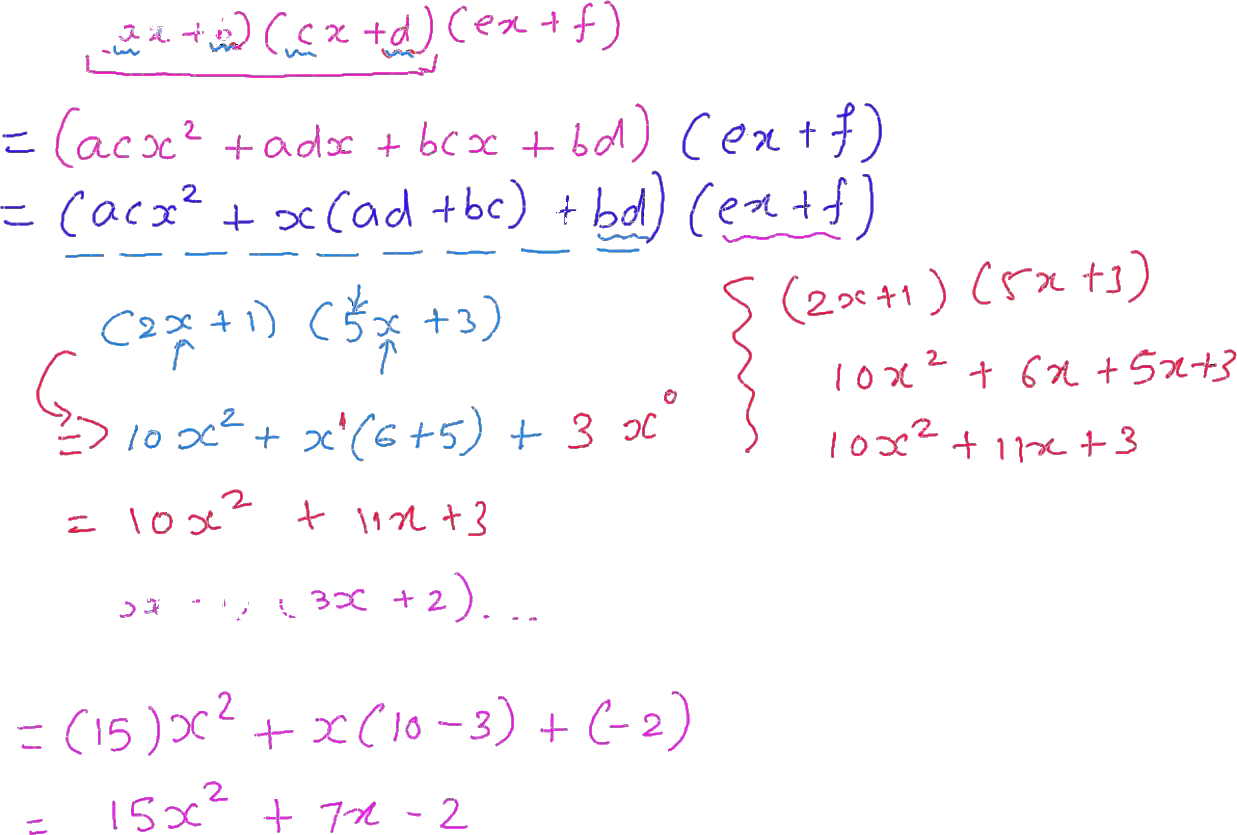 ax + b) (cx + d) (ex + f)
= (acx² + adx + bcx + bd) (ex + f)
= (acx² + x(ad + bc) + bd) (ex + f)
(2x + 1) (5x + 3)
=> 10x² + x¹(6 + 5) + 3x⁰
= 10x² + 11x + 3
(2x + 1) (5x + 3)
10x² + 6x + 5x + 3
10x² + 11x + 3
(3x + 2)...
= (15)x² + x(10 - 3) + (-2)
= 15x² + 7x - 2